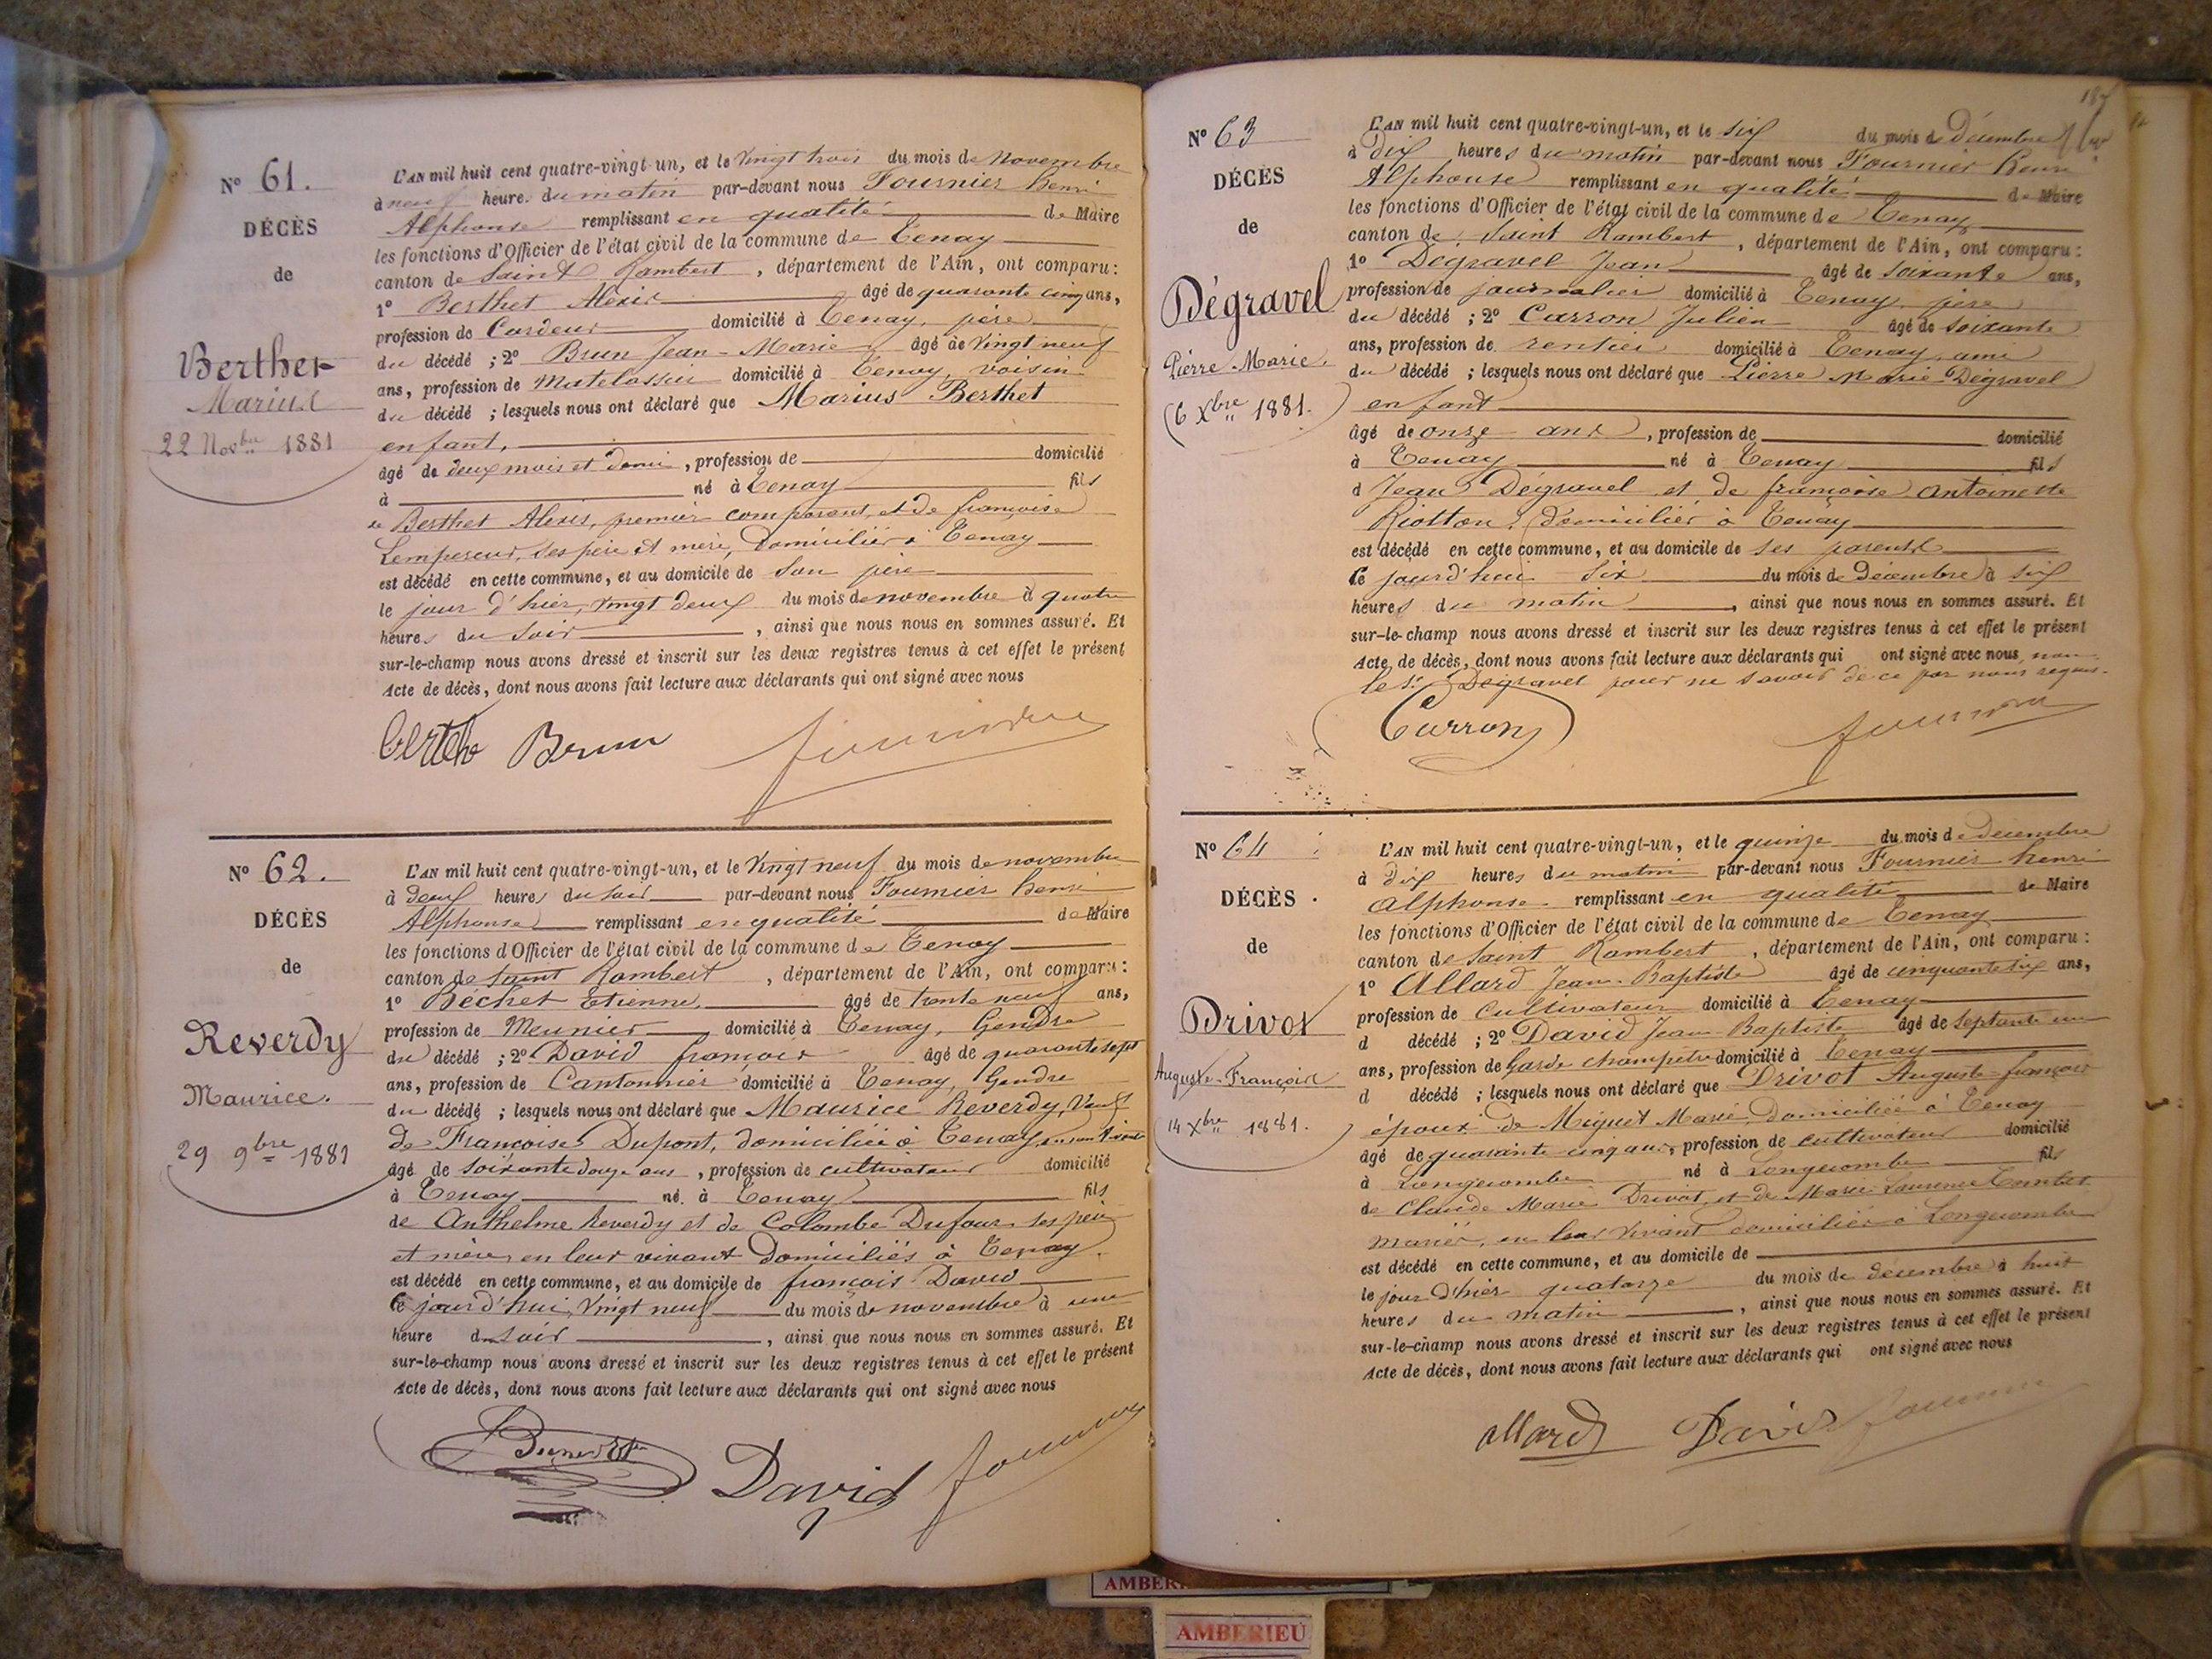 N° 61.
DÉCÈS
de
Berthet
Marius
22 Novbre 1881
L'AN mil huit cent quatre-vingt-un, et le vingt trois du mois de novembre
à neuf heures du matin par-devant nous Fournier henri
Alphonse remplissant en qualité de Maire
les fonctions d'Officier de l'état civil de la commune de Tenay
canton de Saint Rambert, département de l'Ain, ont comparu :
1° Berthet Alexis âgé de quarante cinq ans,
profession de Cardeur domicilié à Tenay, père
du décédé ; 2° Brun Jean-Marie âgé de vingt neuf
ans, profession de Matelassier domicilié à Tenay, voisin
du décédé ; lesquels nous ont déclaré que Marius Berthet
enfant,
âgé de deux mois et demi, profession de domicilié
à né à Tenay fils
de Berthet Alexis, premier comparant, et de françoise
Lempereur, ses père et mère, domiciliés à Tenay
est décédé en cette commune, et au domicile de son père
le jour d'hier, vingt deux du mois de novembre à quatre
heures du soir, ainsi que nous nous en sommes assuré. Et
sur-le-champ nous avons dressé et inscrit sur les deux registres tenus à cet effet le présent
Acte de décès, dont nous avons fait lecture aux déclarants qui ont signé avec nous
Brun
N° 62.
DÉCÈS
de
Reverdy
Maurice.
29 9bre 1881
L'AN mil huit cent quatre-vingt-un, et le vingt neuf du mois de novembre
à deux heures du soir par-devant nous Fournier henri
Alphonse remplissant en qualité de Maire
les fonctions d'Officier de l'état civil de la commune de Tenay
canton de Saint Rambert, département de l'Ain, ont comparu :
1° Béchet Etienne, âgé de trente neuf ans,
profession de Meunier domicilié à Tenay, Gendre
du décédé ; 2° David françois âgé de quarante sept
ans, profession de Cantonnier domicilié à Tenay, Gendre
du décédé ; lesquels nous ont déclaré que Maurice Reverdy, Veuf
de Françoise Dupont, domiciliée à Tenay
âgé de soixante douze ans, profession de cultivateur domicilié
à Tenay né à Tenay fils
de Anthelme Reverdy et de Colombe Dufour ses père
et mère, en leur vivant domiciliés à Tenay.
est décédé en cette commune, et au domicile de françois David
ce jourd'hui, vingt neuf du mois de novembre à une
heure du soir, ainsi que nous nous en sommes assuré. Et
sur-le-champ nous avons dressé et inscrit sur les deux registres tenus à cet effet le présent
Acte de décès, dont nous avons fait lecture aux déclarants qui ont signé avec nous
David
N° 63
DÉCÈS
de
Dégravel
Pierre-Marie.
(6 Xbre 1881.
L'AN mil huit cent quatre-vingt-un, et le six du mois de Décembre
à dix heures du matin par-devant nous Fournier henri
Alphonse remplissant en qualité de Maire
les fonctions d'Officier de l'état civil de la commune de Tenay
canton de Saint Rambert, département de l'Ain, ont comparu :
1° Dégravel Jean âgé de soixante ans,
profession de journalier domicilié à Tenay, père
du décédé ; 2° Carron Julien âgé de soixante
ans, profession de rentier domicilié à Tenay, ami
du décédé ; lesquels nous ont déclaré que Pierre Marie Dégravel
enfant
âgé de onze ans, profession de domicilié
à Tenay né à Tenay fils
d Jean Dégravel et de françoise Antoinette
Riotton, domiciliés à Tenay
est décédé en cette commune, et au domicile de ses parents
ce jourd'hui six du mois de Décembre à six
heures du matin, ainsi que nous nous en sommes assuré. Et
sur-le-champ nous avons dressé et inscrit sur les deux registres tenus à cet effet le présent
Acte de décès, dont nous avons fait lecture aux déclarants qui ont signé avec nous, non
le sr Dégravel pour ne savoir de ce par nous requis.
Carron
N° 64
DÉCÈS
de
Drivot
Auguste-François
14 Xbre 1881.
L'AN mil huit cent quatre-vingt-un, et le quinze du mois de décembre
à dix heures du matin par-devant nous Fournier henri
Alphonse remplissant en qualité de Maire
les fonctions d'Officier de l'état civil de la commune de Tenay
canton de Saint Rambert, département de l'Ain, ont comparu :
1° Allard Jean-Baptiste âgé de cinquante six ans,
profession de cultivateur domicilié à Tenay
d décédé ; 2° David Jean Baptiste âgé de septante un
ans, profession de Garde champêtre domicilié à Tenay
d décédé ; lesquels nous ont déclaré que Drivot Auguste françois
époux de Miguet Marie, domiciliée à Tenay
âgé de quarante cinq ans, profession de cultivateur domicilié
à Longecombe né à Longecombe fils
de Claude Marie Drivot, et de Marie Laurence
mariés, en leur vivant domiciliés à Longecombe
est décédé en cette commune, et au domicile de
le jour d'hier quatorze du mois de décembre à huit
heures du matin, ainsi que nous nous en sommes assuré. Et
sur-le-champ nous avons dressé et inscrit sur les deux registres tenus à cet effet le présent
Acte de décès, dont nous avons fait lecture aux déclarants qui ont signé avec nous
allard David
AMBERIEU